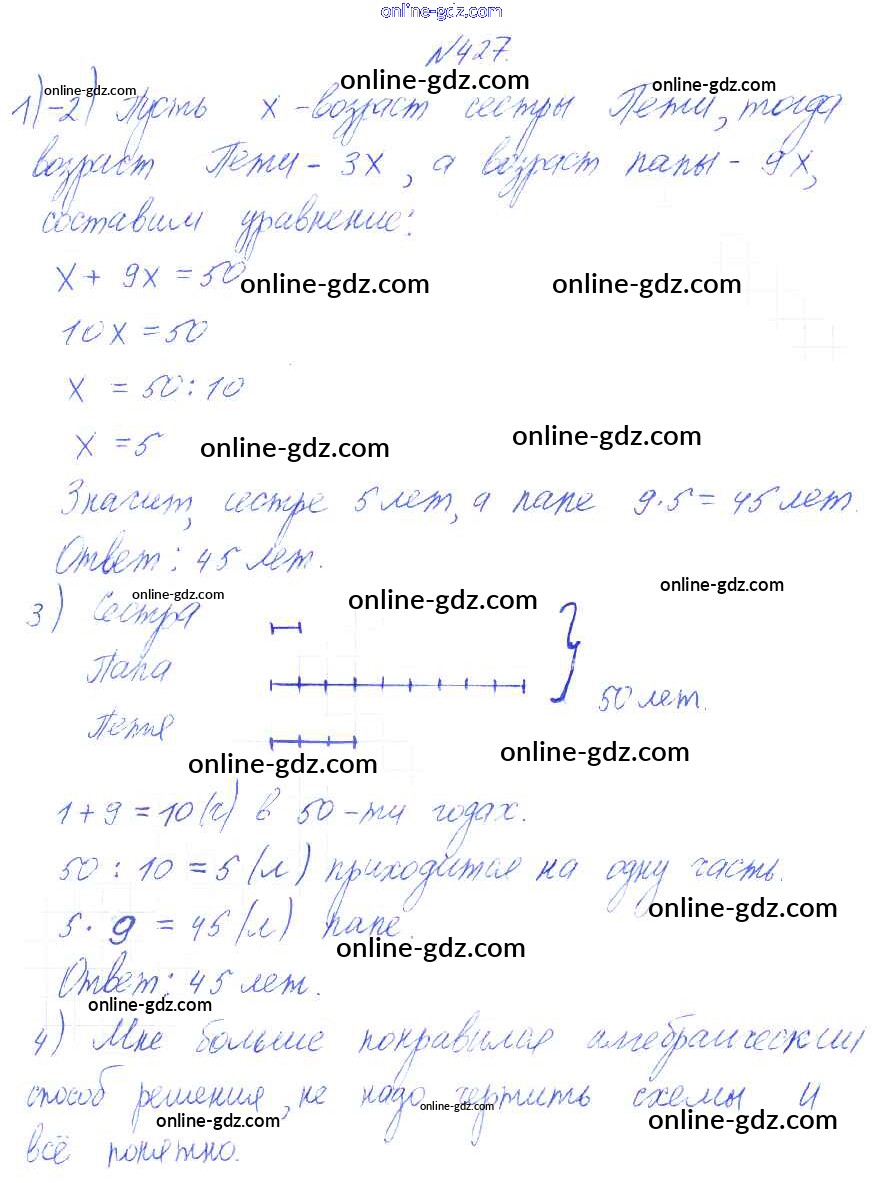 online-gdz.com
№427.
online-gdz.com online-gdz.com online-gdz.com
1)-2) Пусть х - возраст сестры Пети, тогда
возраст Пети - 3х, а возраст папы - 9х,
составим уравнение:
х + 9х = 50
online-gdz.com online-gdz.com
10х = 50
х = 50 : 10
х = 5
online-gdz.com online-gdz.com
Значит, сестре 5 лет, а папе 9·5 = 45 лет.
Ответ: 45 лет.
online-gdz.com online-gdz.com online-gdz.com
3) Сестра
Папа
50 лет.
Петя
online-gdz.com online-gdz.com
1 + 9 = 10 (ч) в 50-ти годах.
50 : 10 = 5 (л) приходится на одну часть.
online-gdz.com
5 · 9 = 45 (л) папе.
online-gdz.com
Ответ: 45 лет.
online-gdz.com
4) Мне больше понравился алгебраический
способ решения, не надо чертить схемы и
online-gdz.com online-gdz.com online-gdz.com
всё понятно.